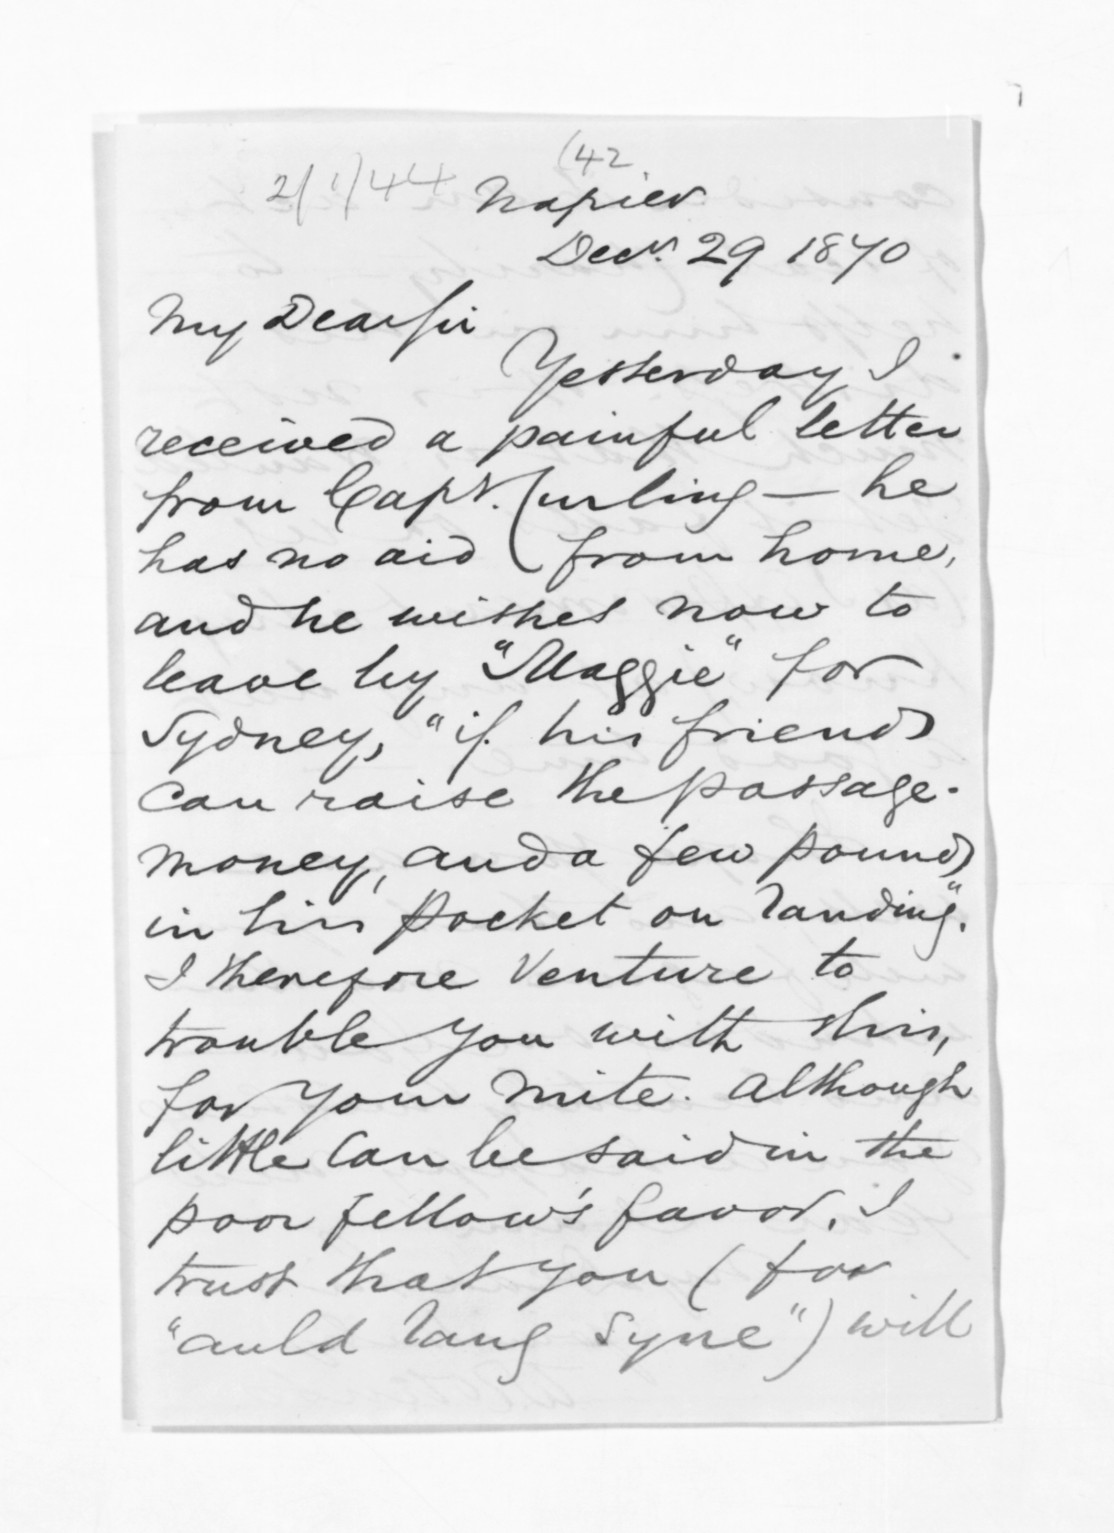 (42
2/1/44 Napier
Decr. 29 1870
My Dear Sir
Yesterday I
received a painful letter
from Capt. Curling — he
has no aid from home,
and he wishes now to
leave by "Maggie" for
Sydney, "if his friends
can raise the passage-
money, and a few pounds
in his pocket on landing".
I therefore venture to
trouble you with this,
for your mite. Although
little can be said in the
poor fellow's favor, I
trust that you (for
"auld lang syne") will